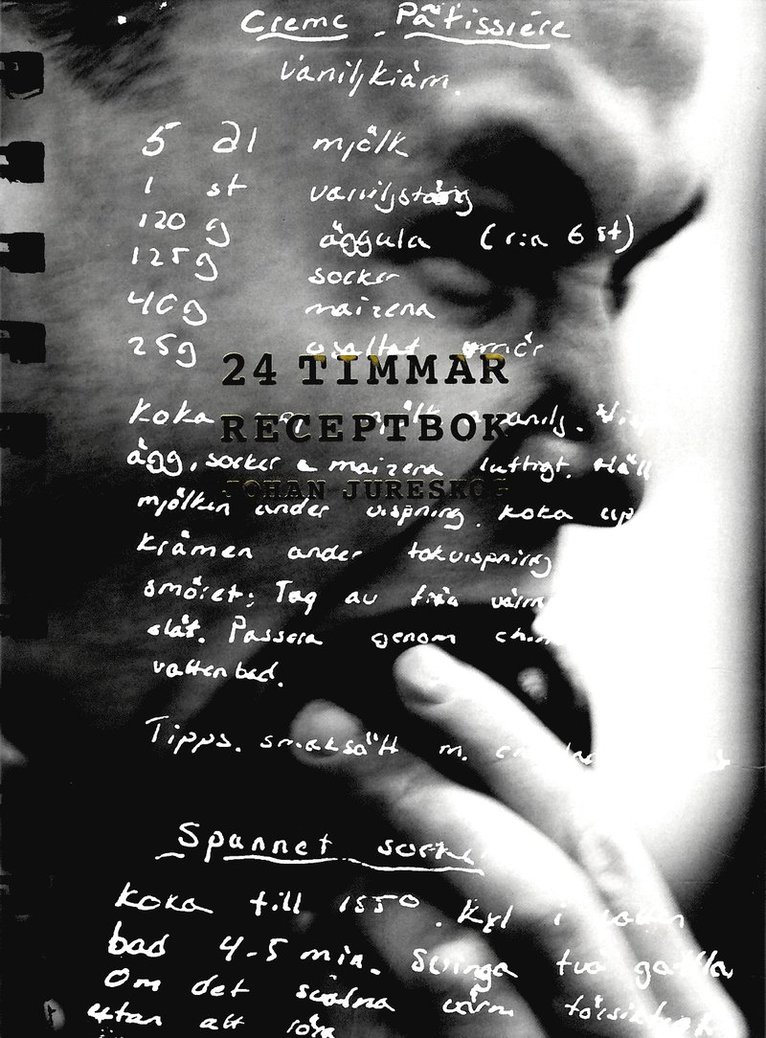 Creme Pâtissiére
Vaniljkräm.
5 dl mjölk
1 st vaniljstång
120 g äggula (c:a 6 st)
125 g socker
40 g maizena
25 g osaltat smör
24 TIMMAR
RECEPTBOK
JOHAN JURESKOG
Koka mjölk vanilj.
ägg, socker & maizena luftigt. Häll
mjölken under vispning. Koka upp
krämen under tokvispning
smöret; Tag av från värm
slät. Passera genom
vattenbad.
Tipps. smaksätt m.
Spunnet socker
Koka till 155°. Kyl i vatten
bad 4-5 min. Svinga två gafflar
Om det svalna värm försiktigt
utan att röra